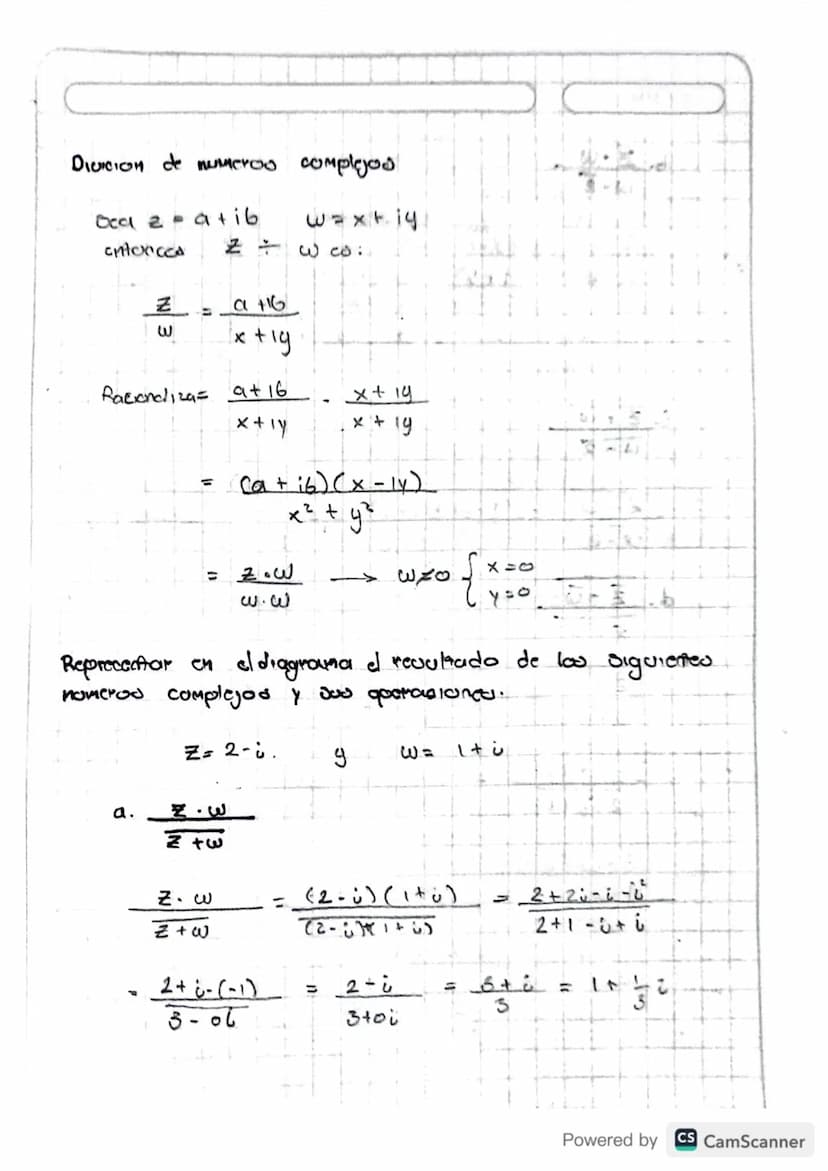 Division de numeros complejos
Sea z = a + ib w = x + iy
entonces z ÷ w es:
z/w = (a + ib)/(x + iy)
Racionaliza = (a + ib)/(x + iy) · (x + iy)/(x + iy)
= (a + ib)(x - iy)/(x² + y²)
= z·w/w·w → w≠0 { x=0 y=0
Representar en el diagrama el resultado de los siguientes
numeros complejos y sus operasiones.
z = 2 - i. y w = 1 + i
a. z·w/z̅ + w̅
z·w/z̅ + w̅ = (2 - i)(1 + i)/(2 - i)+(1 + i) = 2 + 2i - i - i²/2 + 1 - i + i
= 2 + i - (-1)/3 - 0i = 2 - i/3 + 0i = 3 + i/3 = 1 + 1/3 i
Powered by CS CamScanner